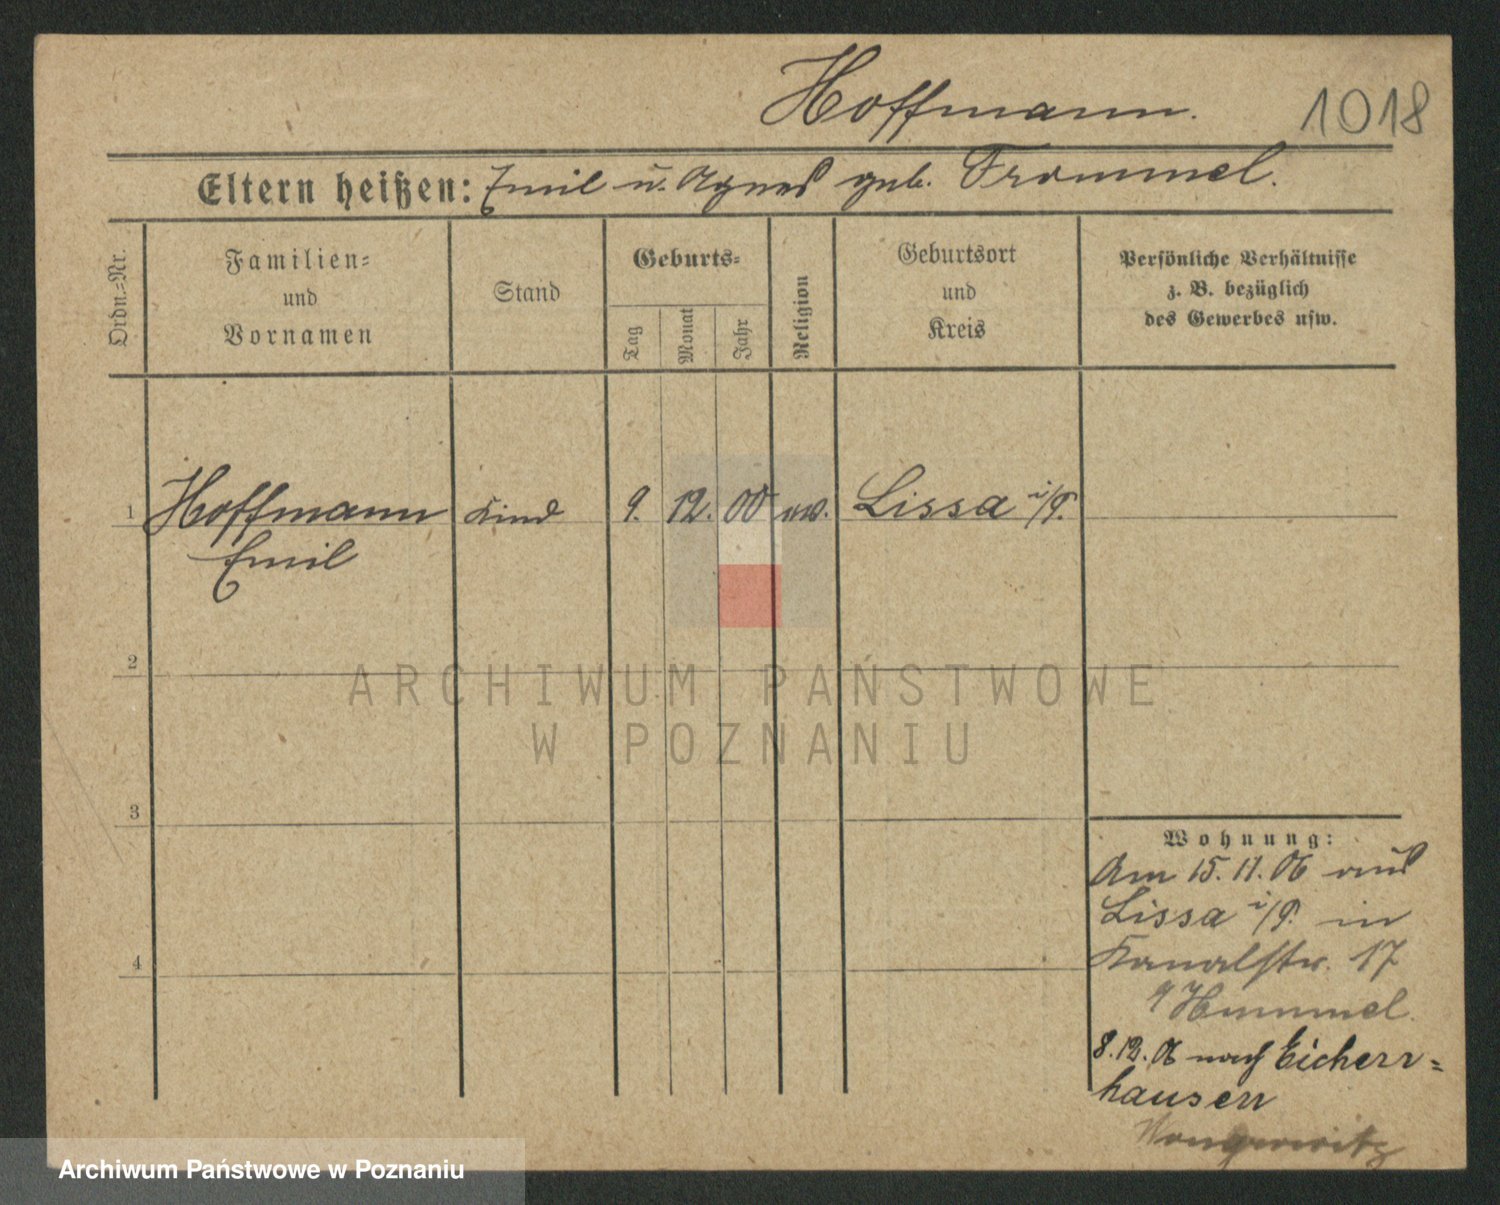 Hoffmann.
1018
Eltern heißen: Emil u. Agnes geb. Frommel.
Ordn.-Nr.
Familien-
und
Vornamen
Stand
Geburts-
Tag
Monat
Jahr
Religion
Geburtsort
und
Kreis
Persönliche Verhältnisse
z. B. bezüglich
des Gewerbes usw.
1 Hoffmann Kind 9. 12. 00 ev. Lissa i/P.
Emil
2
ARCHIWUM PAŃSTWOWE
W POZNANIU
3
Wohnung:
Am 15. 11. 06 aus
Lissa i/P. in
Kanalstr. 17
Hummel.
4
8.12.06 nach Eichen-
hausen
Wongrowitz
Archiwum Państwowe w Poznaniu